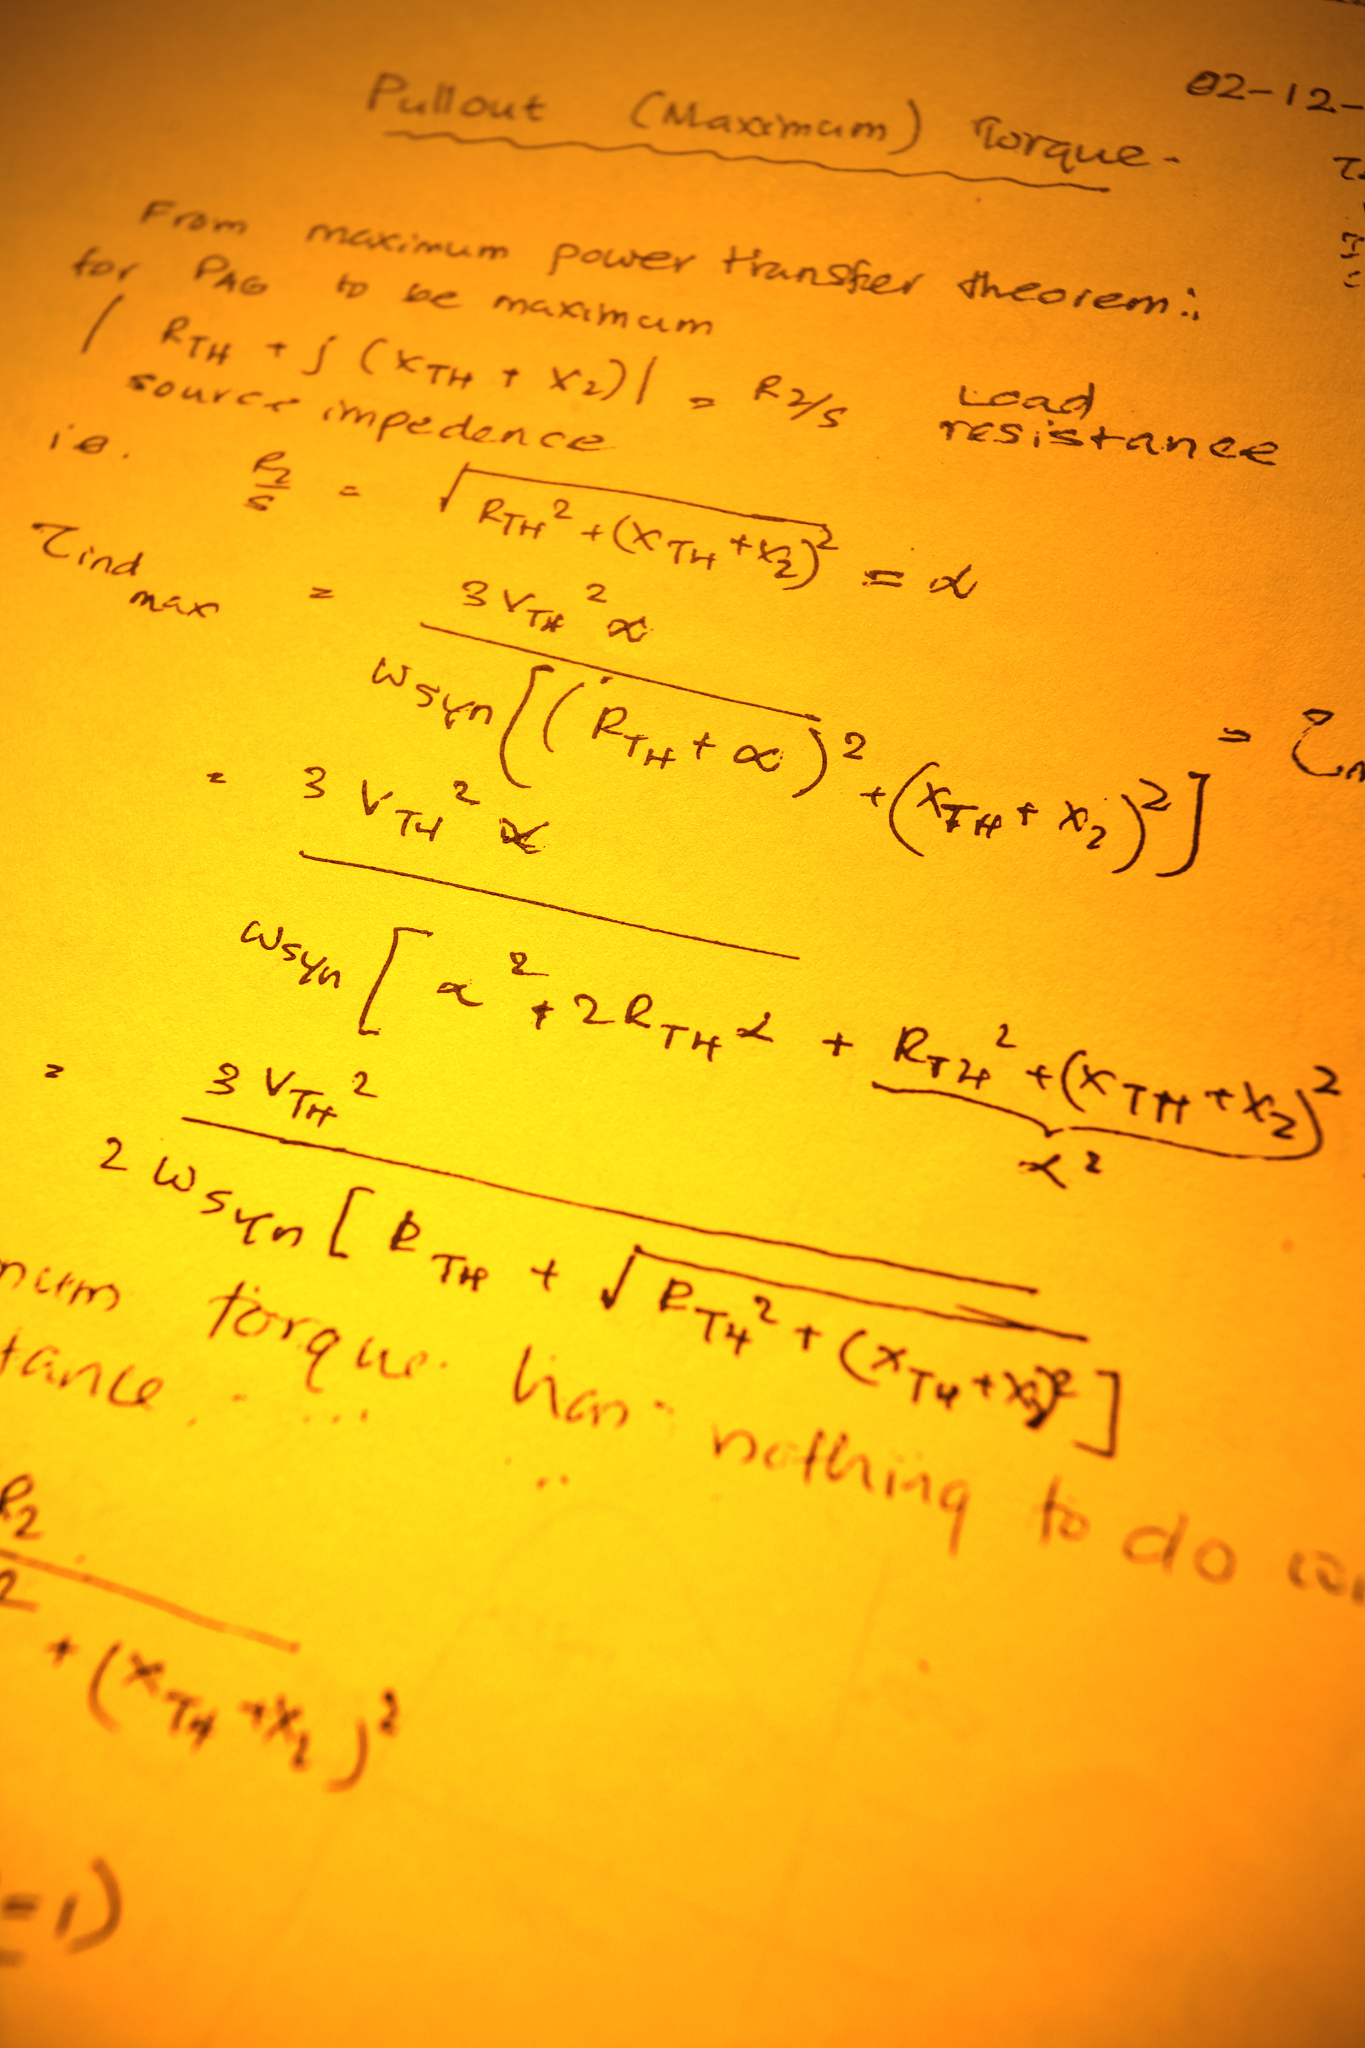 02-12-
Pullout (Maximum) Torque.
From maximum power transfer theorem:
for PAG to be maximum
| RTH + j (XTH + X2) | = R2/s Load resistance
source impedence
i.e. R2/s = √(RTH² + (XTH + X2)²) = α
τind max = 3 VTH² α / ωsyn [(RTH + α)² + (XTH + X2)²] =
= 3 VTH² α / ωsyn [α² + 2 RTH α + RTH² + (XTH + X2)²
α²
= 3 VTH² / 2 ωsyn [RTH + √(RTH² + (XTH + X2)²]
torque has nothing to do
R2
2 + (XTH + X2)²
=1)